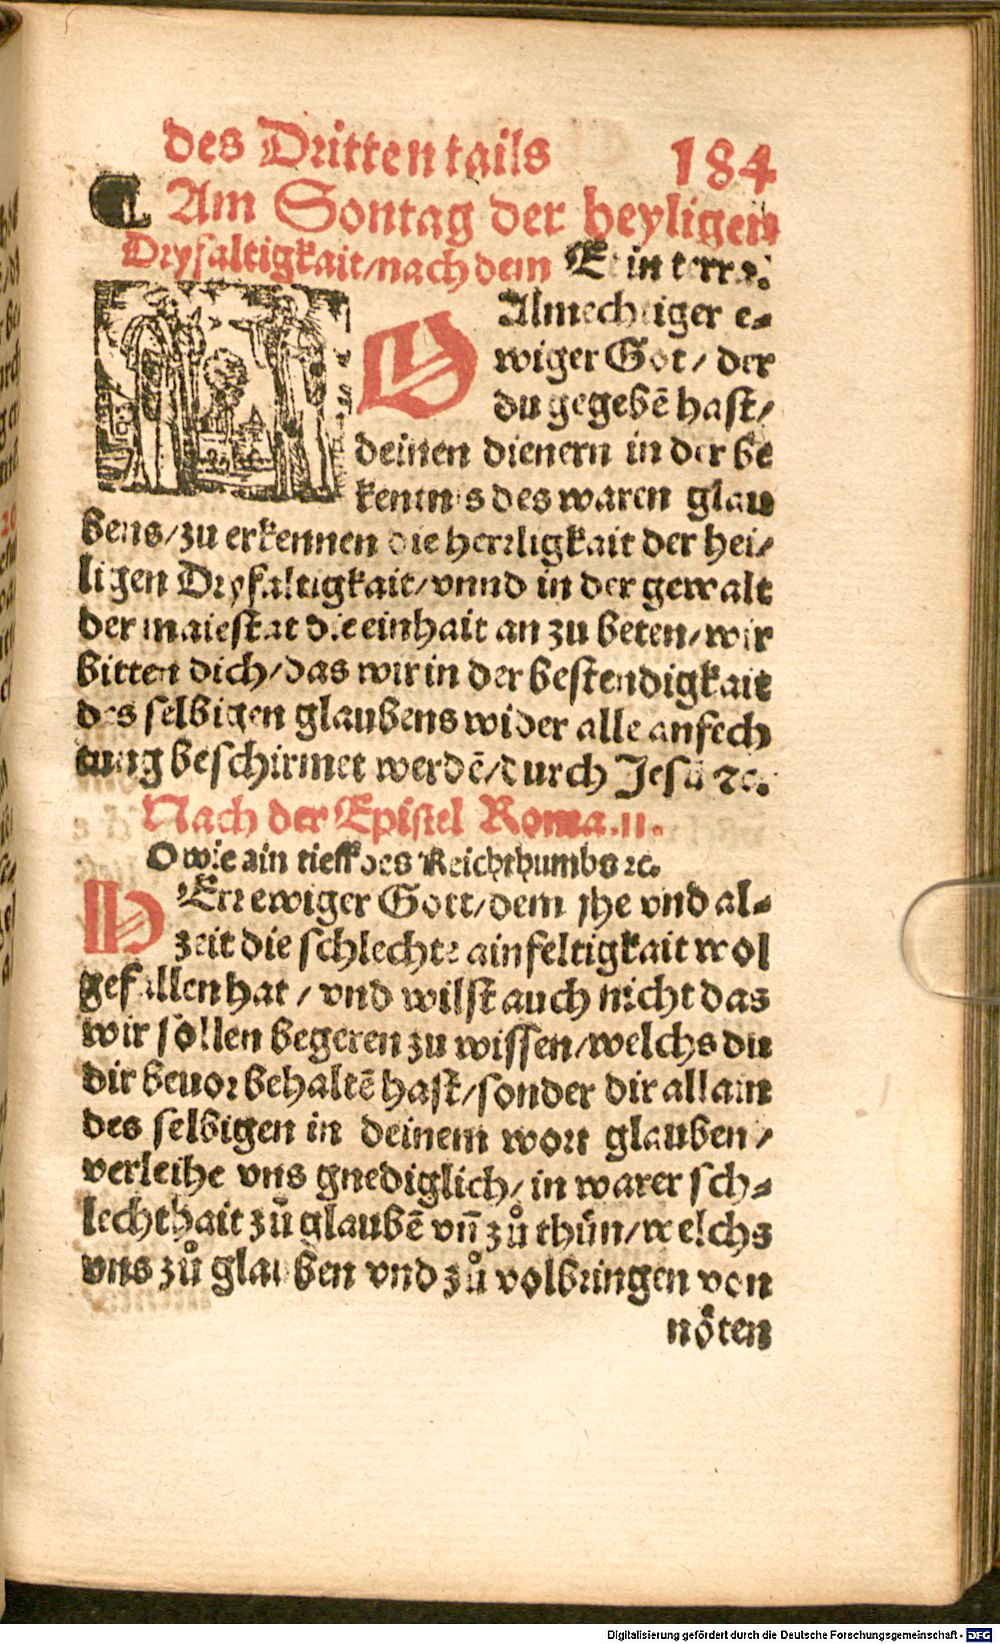 des Dritten tails 184
¶ Am Sontag der heyligen
Dryfaltigkait/nach dem Et in terra.
O Almechtiger e⸗
wiger Got/ der
du gegebē hast/
deinen dienern in der be
kentnis des waren glau
bens/zu erkennen die herrligkait der hei/
ligen Dryfaltigkait/vnnd in der gewalt
der maiestat die einhait an zu beten/wir
bitten dich/das wir in der bestendigkait
des selbigen glaubens wider alle anfech
tung beschirmet werdē/durch Jesū ꝛc.
Nach der Epistel Roma.11.
O wie ain tieff des Reichthumbs ꝛc.
HErr ewiger Gott/dem yhe vnd al⸗
zeit die schlechte ainfeltigkait wol
gefallen hat / vnd wilst auch nicht das
wir sollen begeren zu wissen/welchs du
dir beuor behaltē hast/sonder dir allain
des selbigen in deinem wort glauben/
verleihe vns gnediglich/in warer sch⸗
lechthait zů glaubē vn̄ zů thůn/welchs
vns zů glauben vnd zů volbringen von
nöten
Digitalisierung gefördert durch die Deutsche Forschungsgemeinschaft - DFG